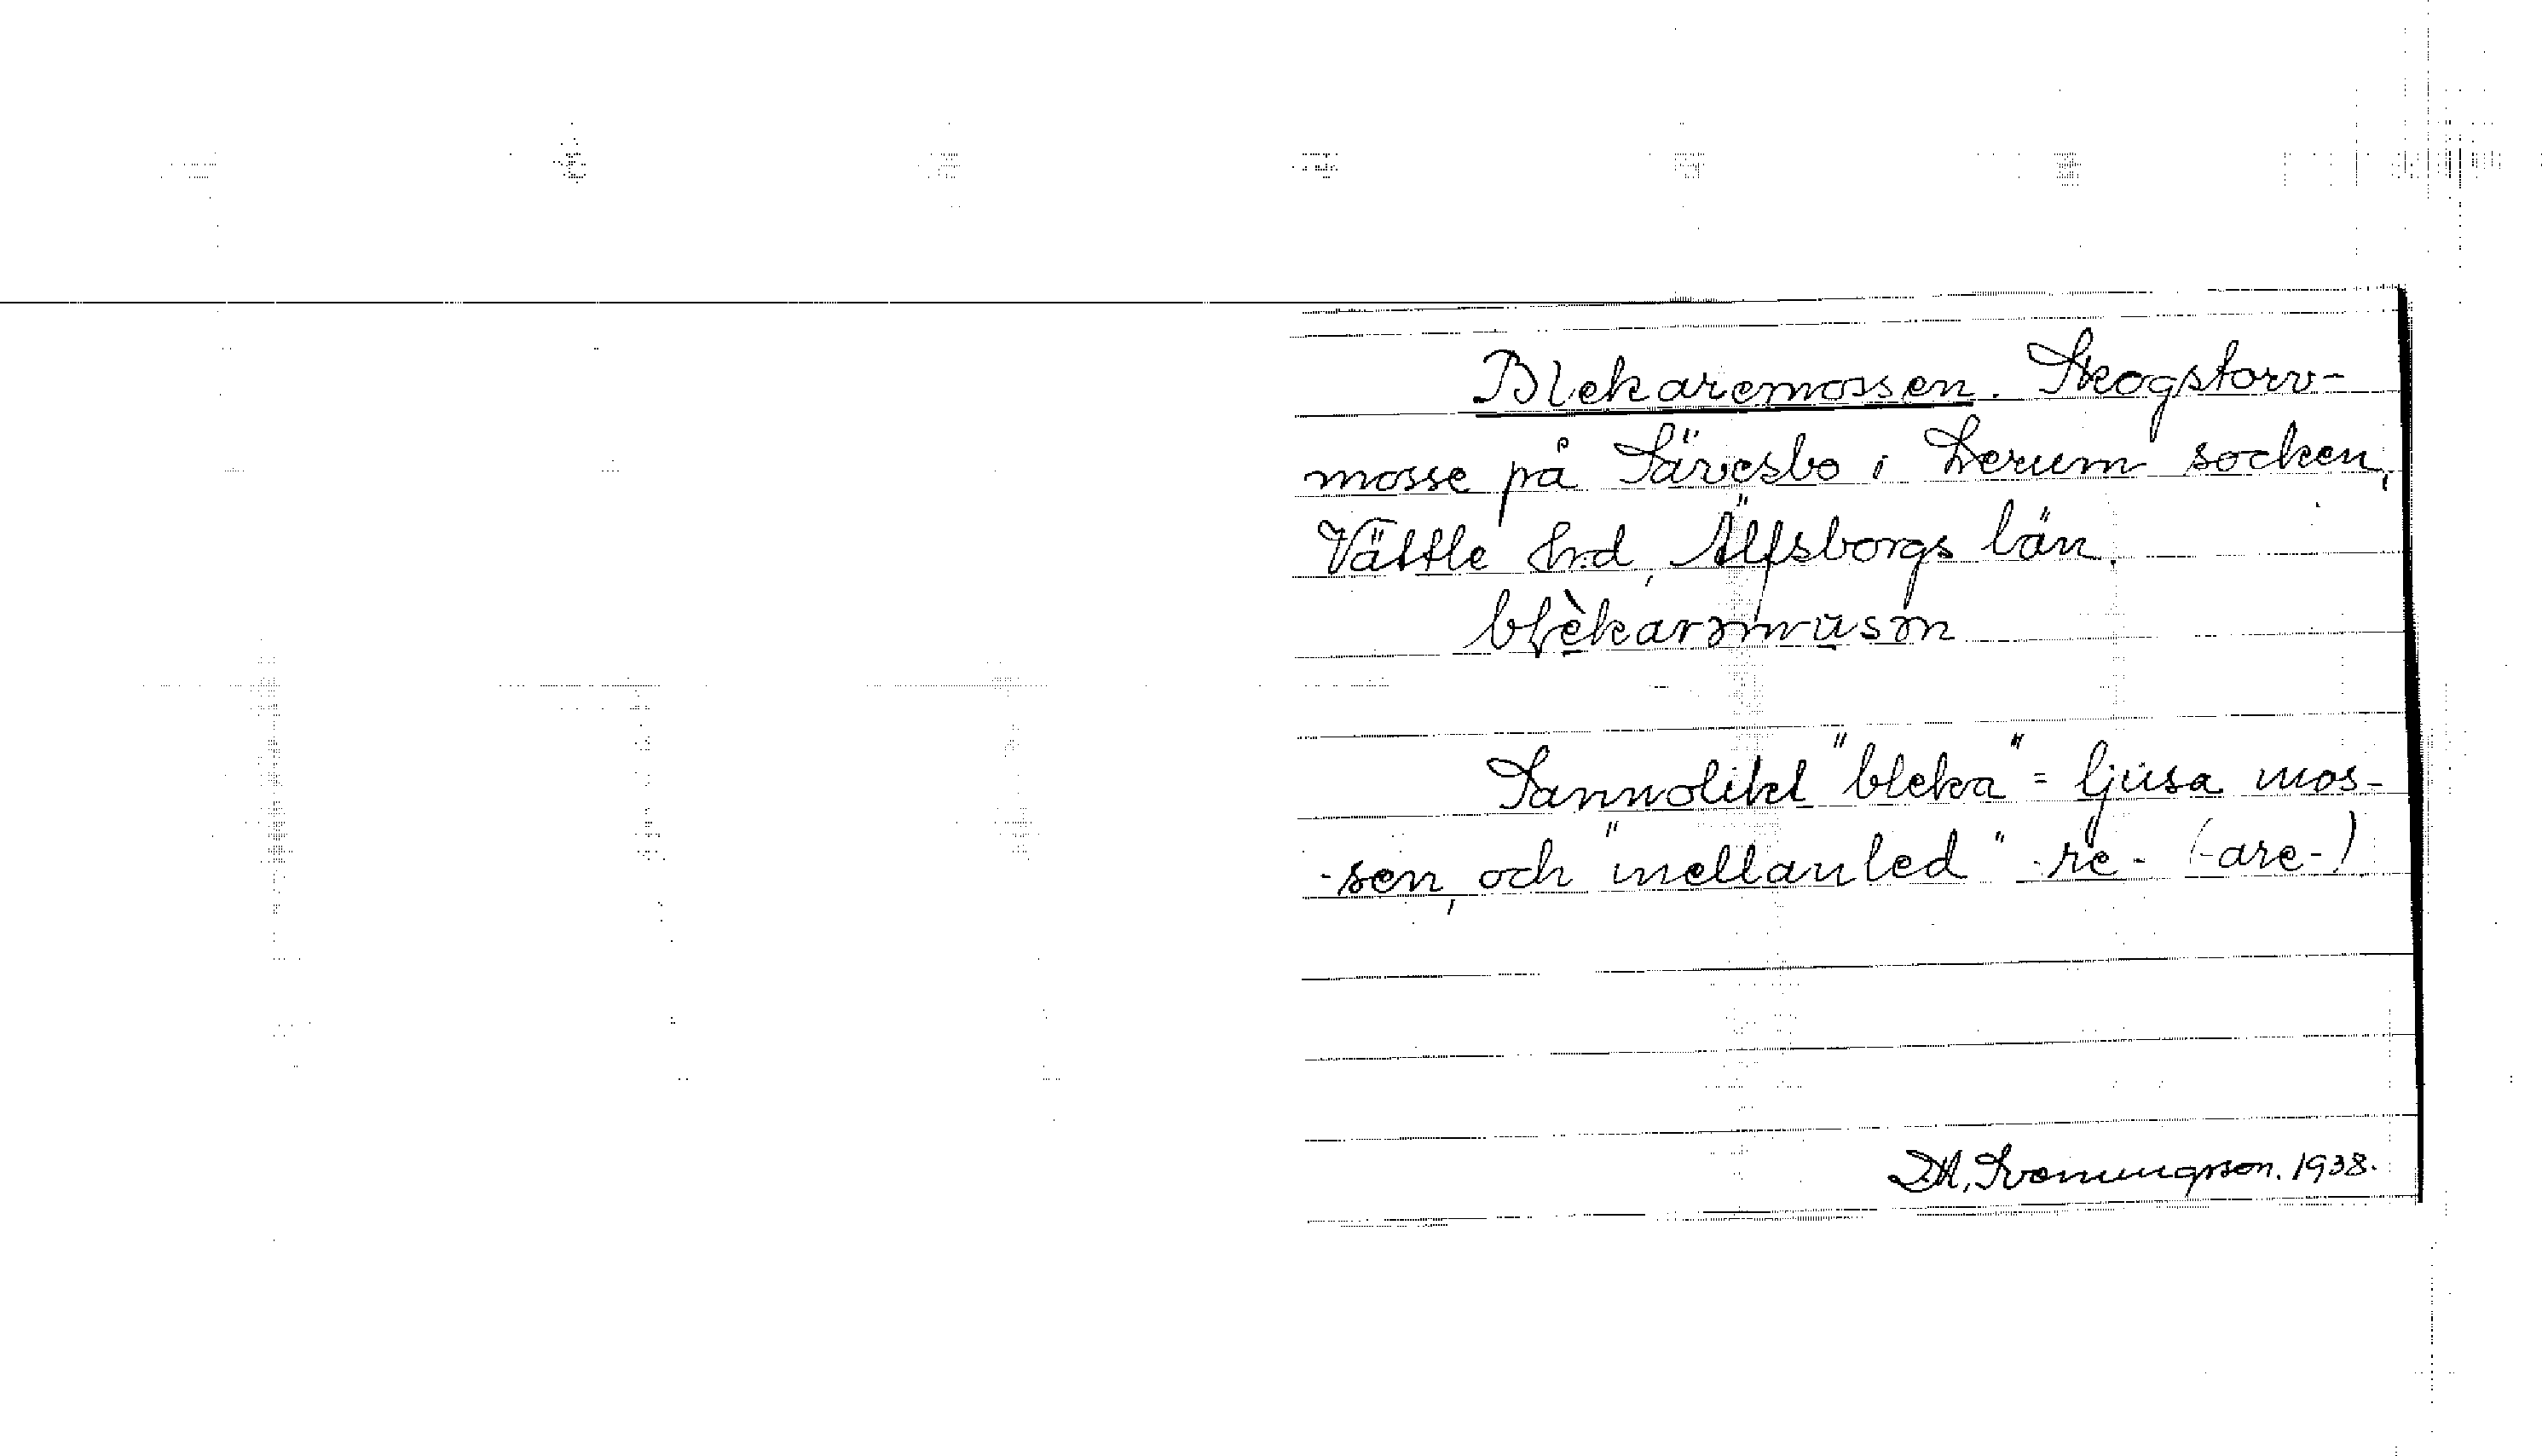 Blekaremossen. Skogstorv-
mosse på Särvesbo i Lerum socken,
Vättle hrd, Älfsborgs län.
blèkarəmusən
Sannolikt "bleka" = ljusa mos-
-sen, och "mellanled" -re- (-are-).
1938.